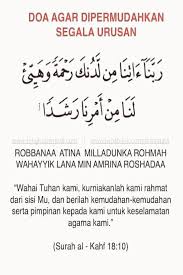 DOA AGAR DIPERMUDAHKAN
SEGALA URUSAN
رَبَّنَآ ءَاتِنَا مِن لَّدُنكَ رَحْمَةً وَهَيِّئْ
لَنَا مِنْ أَمْرِنَا رَشَدًا
ROBBANAA ATINA MILLADUNKA ROHMAH
WAHAYYIK LANA MIN AMRINA ROSHADAA
"Wahai Tuhan kami, kurniakanlah kami rahmat
dari sisi Mu, dan berilah kemudahan-kemudahan
serta pimpinan kepada kami untuk keselamatan
agama kami."
(Surah al - Kahf 18:10)